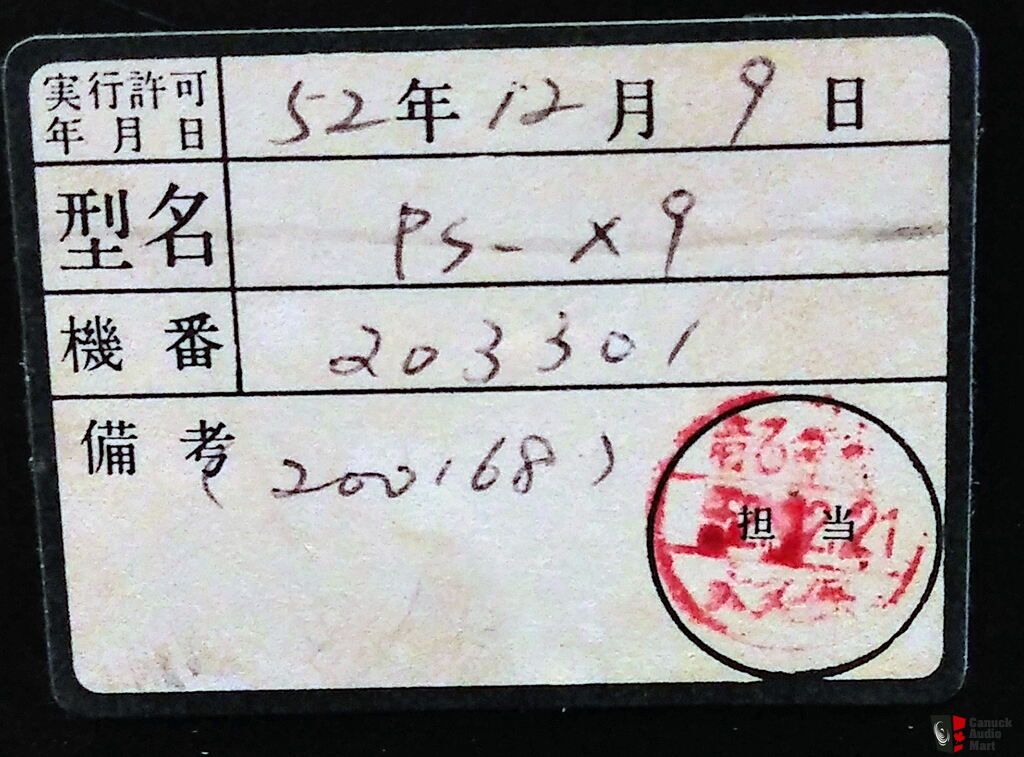 実行許可
年月日
52年12月9日
型名
PS-X9
機番
203301
備考
(200168)
担当
21
Canuck
Audio
Mart